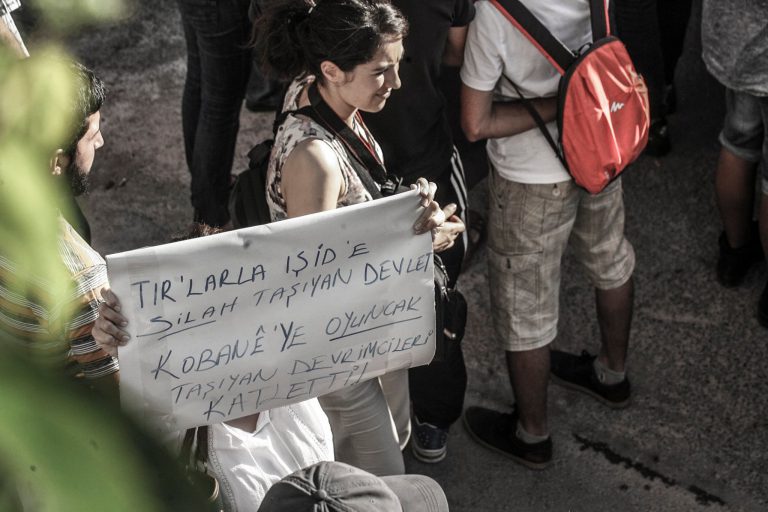 TIR'LARLA IŞİD'E
SiLAH TAŞIYAN DEVLET
KOBANÊ'YE OYUNCAK
TAŞIYAN DEVRİMCİLERİ
KATLETTİ!